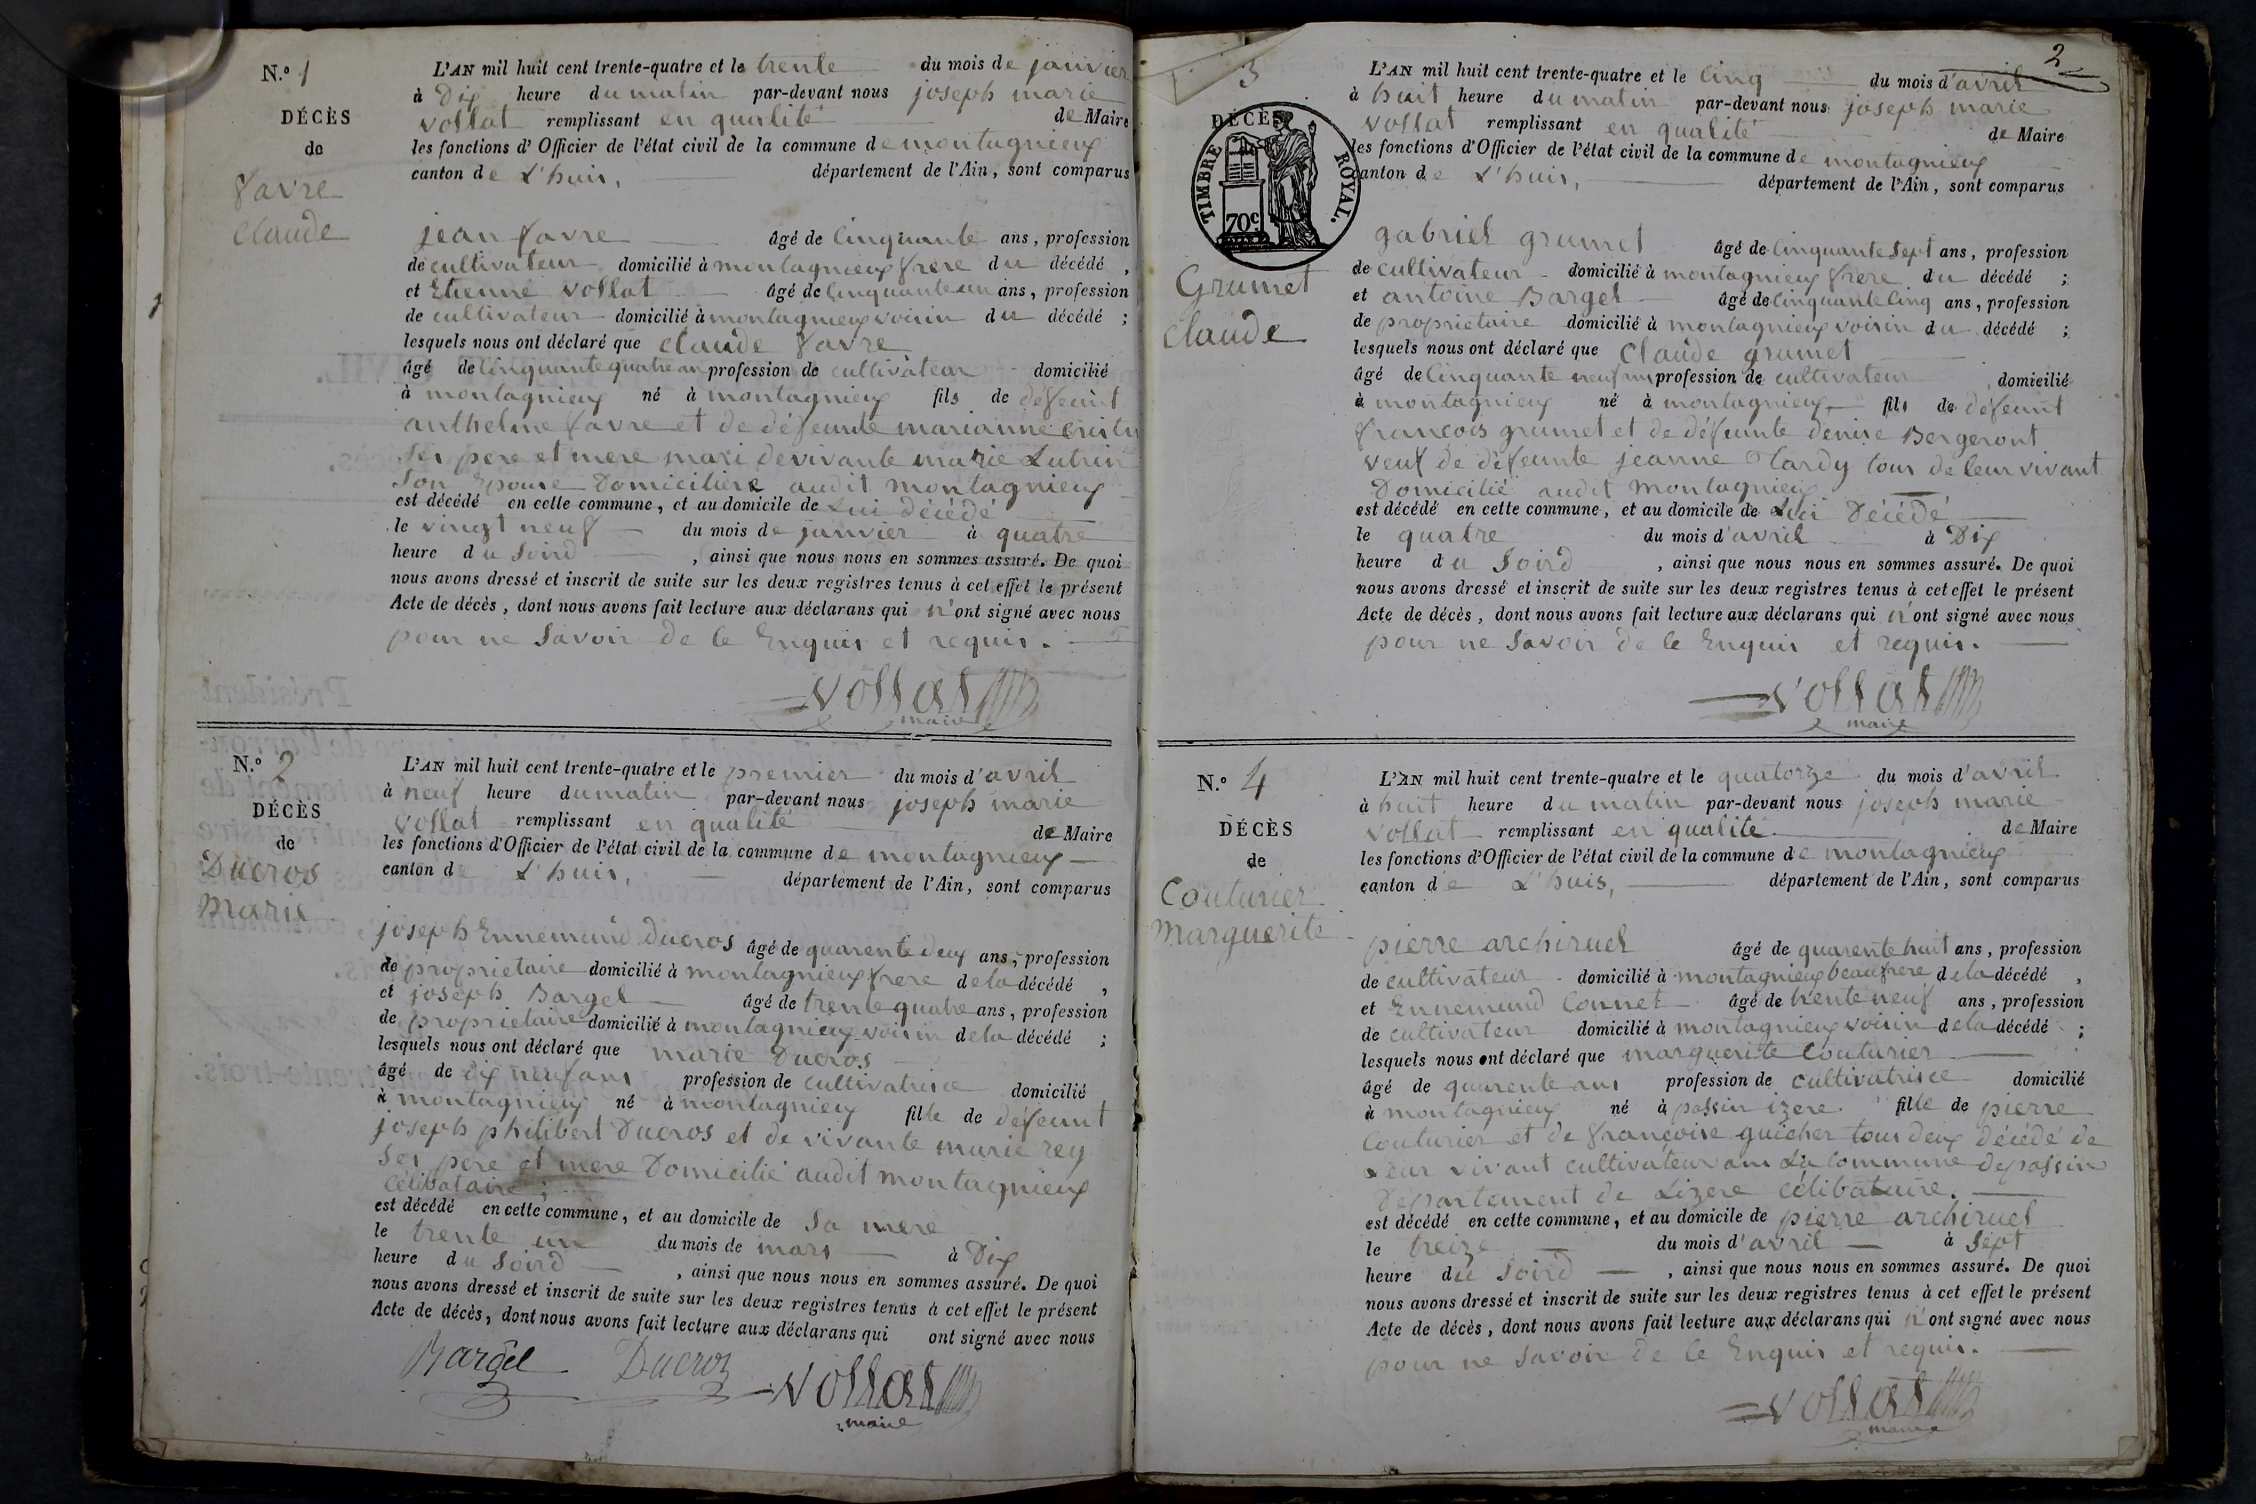 N.° 1
DÉCÈS
de
favre
claude
L'AN mil huit cent trente-quatre et le trente du mois de janvier
à Dix heure du matin par-devant nous joseph marie
vollat remplissant en qualité de Maire
les fonctions d'Officier de l'état civil de la commune de montagnieux
canton de L'huis, département de l'Ain, sont comparus
jean favre âgé de cinquante ans, profession
de cultivateur domicilié à montagnieux frere du décédé,
et Etienne vollat âgé de cinquante un ans, profession
de cultivateur domicilié à montagnieux voisin du décédé ;
lesquels nous ont déclaré que claude favre
âgé de cinquante quatre an profession de cultivateur domicilié
à montagnieux né à montagnieux fils de defeunt
anthelme favre et de défeunte marianne
Ses pere et mere mari de vivante marie Lutrin
Son Epouse Domiciliere audit montagnieux
est décédé en cette commune, et au domicile de Lui décédé
le vingt neuf du mois de janvier à quatre
heure du Soird, ainsi que nous nous en sommes assuré. De quoi
nous avons dressé et inscrit de suite sur les deux registres tenus à cet effet le présent
Acte de décès, dont nous avons fait lecture aux déclarans qui n'ont signé avec nous
pour ne Savoir de le Enquis et requis.
vollat
maire
N.° 2
DÉCÈS
de
Ducros
Marie
L'AN mil huit cent trente-quatre et le premier du mois d'avril
à neuf heure du matin par-devant nous joseph marie
vollat remplissant en qualité de Maire
les fonctions d'Officier de l'état civil de la commune de montagnieux
canton de L'huis, département de l'Ain, sont comparus
joseph Ennemund ducros âgé de quarente deux ans, profession
de proprietaire domicilié à montagnieux frere de la décédé,
et joseph Bargel âgé de trente quatre ans, profession
de proprietaire domicilié à montagnieux voisin de la décédé ;
lesquels nous ont déclaré que marie Ducros
âgé de dix neuf ans profession de cultivatrice domicilié
à montagnieux né à montagnieux fille de défeunt
joseph philibert Ducros et de vivante marie rey
Ses pere et mere Domicilié audit montagnieux
célibataire ;
est décédé en cette commune, et au domicile de Sa mere
le trente un du mois de mars à Dix
heure du Soird, ainsi que nous nous en sommes assuré. De quoi
nous avons dressé et inscrit de suite sur les deux registres tenus à cet effet le présent
Acte de décès, dont nous avons fait lecture aux déclarans qui ont signé avec nous
Bargel Ducros vollat
maire
2
3
DÉCÈS
TIMBRE ROYAL.
70c
Grumet
claude
L'AN mil huit cent trente-quatre et le cinq du mois d'avril
à huit heure du matin par-devant nous joseph marie
vollat remplissant en qualité de Maire
les fonctions d'Officier de l'état civil de la commune de montagnieux
canton de L'huis, département de l'Ain, sont comparus
gabriel grumet âgé de cinquante sept ans, profession
de cultivateur domicilié à montagnieux frere du décédé ;
et antoine Bargel âgé de cinquante cinq ans, profession
de proprietaire domicilié à montagnieux voisin du décédé ;
lesquels nous ont déclaré que claude grumet
âgé de cinquante neuf ans profession de cultivateur domicilié
à montagnieux né à montagnieux fils de défeunt
francois grumet et de défunte denise Bergeront
veuf de défeunte jeanne Tardy tous de leur vivant
Domicilié audit montagnieux
est décédé en cette commune, et au domicile de Lui Décédé
le quatre du mois d'avril à Dix
heure du Soird, ainsi que nous nous en sommes assuré. De quoi
nous avons dressé et inscrit de suite sur les deux registres tenus à cet effet le présent
Acte de décès, dont nous avons fait lecture aux déclarans qui n'ont signé avec nous
pour ne Savoir de le Enquis et requis.
vollat
maire
N.° 4
DÉCÈS
de
Couturier
Marguerite
L'AN mil huit cent trente-quatre et le quatorze du mois d'avril
à huit heure du matin par-devant nous joseph marie
vollat remplissant en qualité de Maire
les fonctions d'Officier de l'état civil de la commune de montagnieux
canton de L'huis, département de l'Ain, sont comparus
pierre archiruel âgé de quarente huit ans, profession
de cultivateur domicilié à montagnieux beaufrere de la décédé,
et Ennemund Connet âgé de trente neuf ans, profession
de cultivateur domicilié à montagnieux voisin de la décédé ;
lesquels nous ont déclaré que marguerite Couturier
âgé de quarente ans profession de cultivatrice domicilié
à montagnieux né à passin izere fille de pierre
Couturier et de françoise guicher tous deux décédé de
Leur vivant cultivateur La commune de passin
Departement de Lizere célibataire.
est décédé en cette commune, et au domicile de pierre archiruel
le treize du mois d'avril à Sept
heure du Soird, ainsi que nous nous en sommes assuré. De quoi
nous avons dressé et inscrit de suite sur les deux registres tenus à cet effet le présent
Acte de décès, dont nous avons fait lecture aux déclarans qui n'ont signé avec nous
pour ne Savoir de le Enquis et requis.
vollat
maire